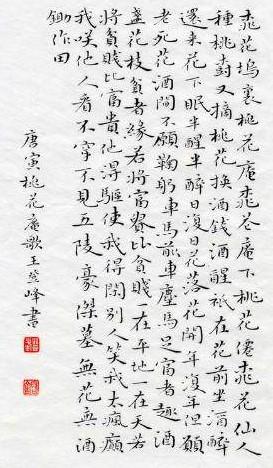 桃花塢裏桃花庵桃花庵下桃花僊桃花仙人
種桃樹又摘桃花換酒錢酒醒衹在花前坐酒醉
還来花下眠半醒半醉日復日花落花開年復年但願
老死花酒間不願鞠躬車馬前車塵馬足富者趣酒
盞花枝貧者緣若將富貴比貧賤一在平地一在天若
將貧賤比富貴他得驅使我得閑別人笑我太瘋癲
我咲他人看不穿不見五陵豪傑墓無花無酒
鋤作田
唐寅桃花庵歌王峰書